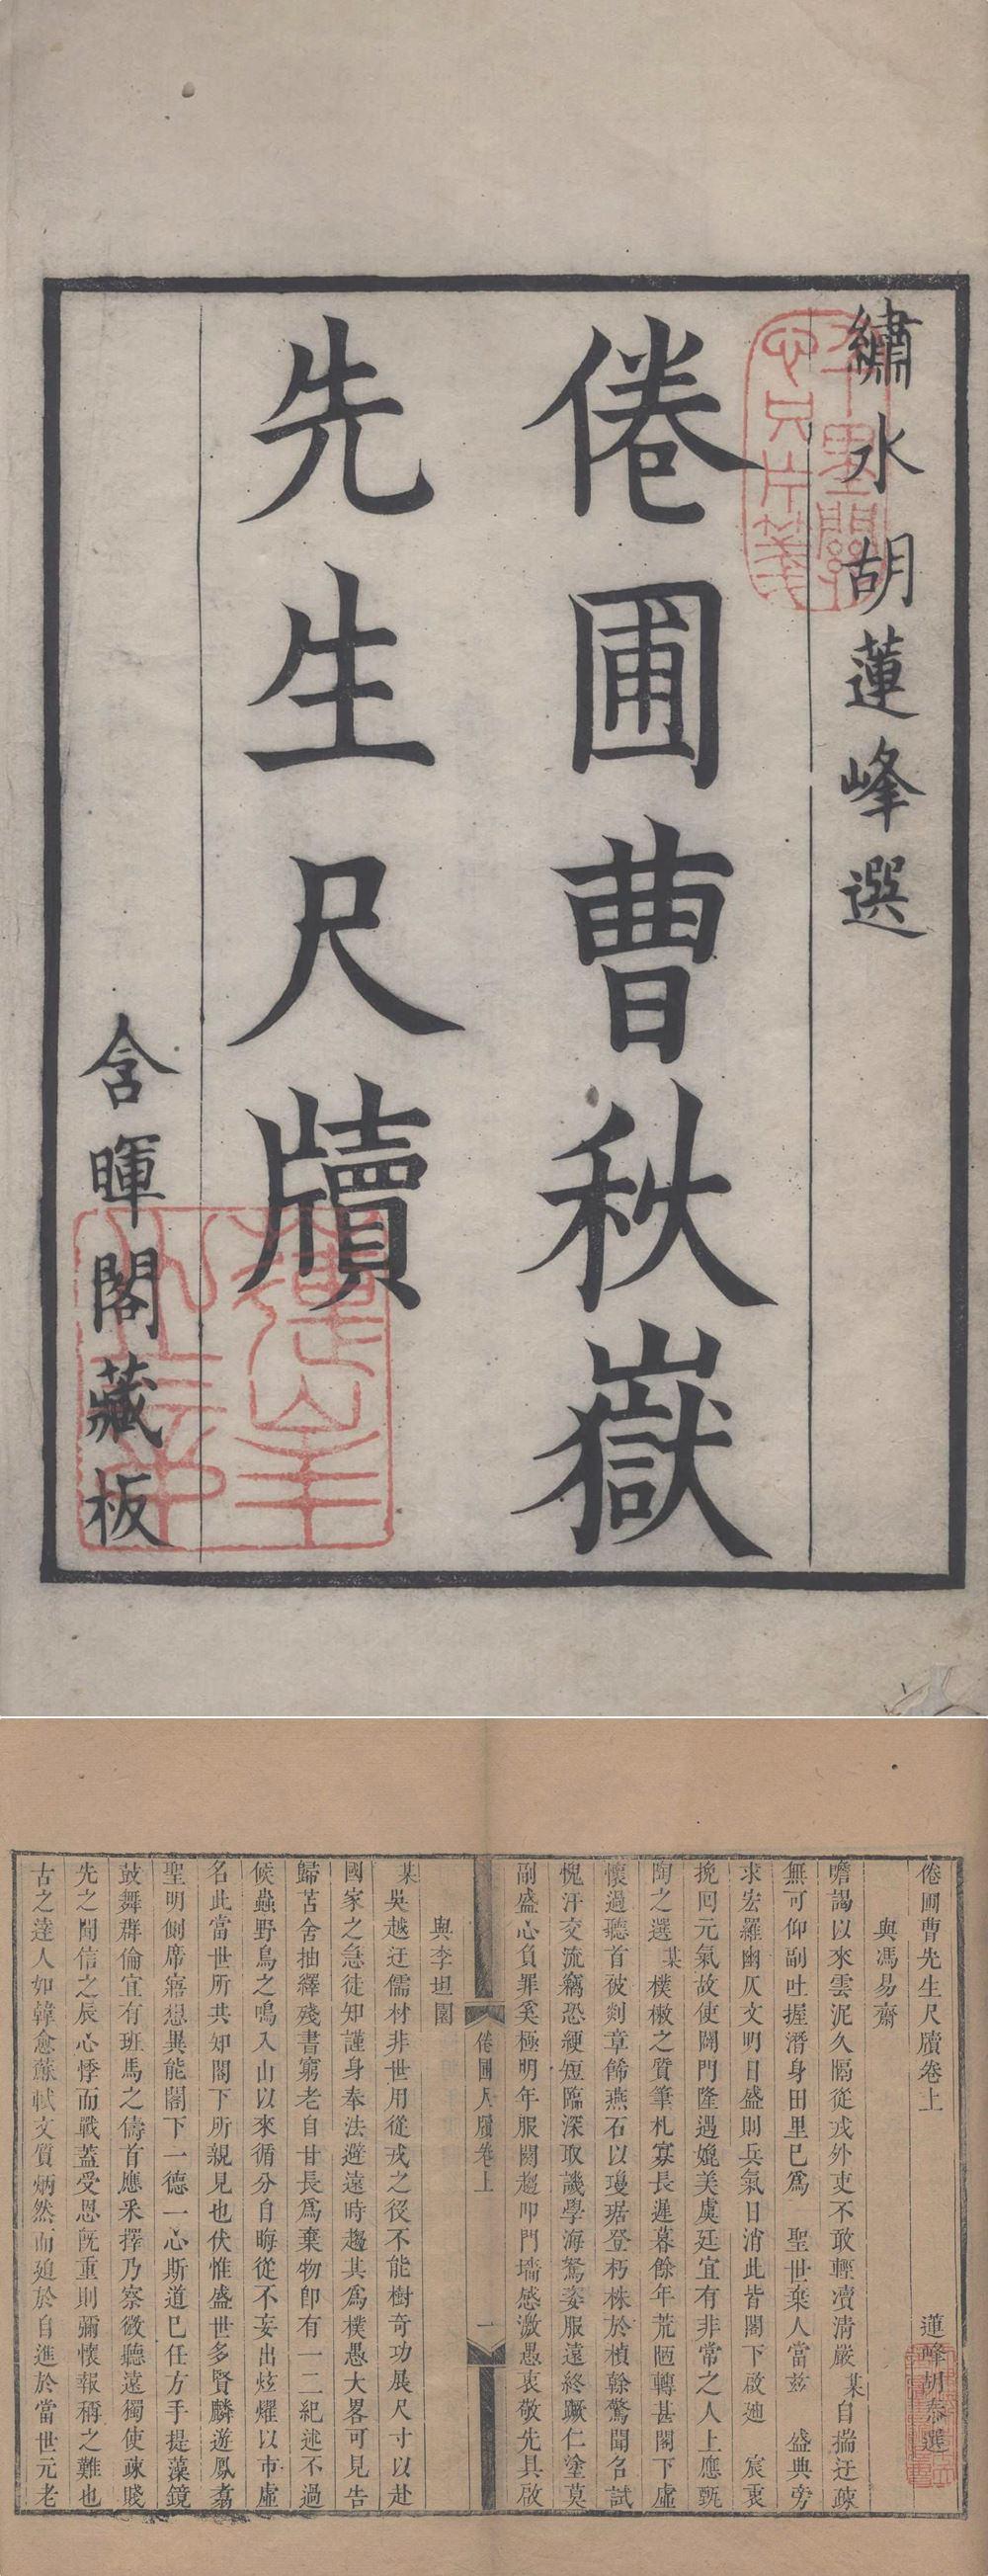 繡水胡蓮峰選
倦圃曹秋嶽
先生尺牘
含暉閣藏板
倦圃曹先生尺牘卷上
蓮峰胡泰選
與馮易齋
瞻謁以來雲泥久隔從戎外吏不敢輕瀆清嚴某自揣迂疎
無可仰副吐握潛身田里已爲 聖世棄人當茲 盛典旁
求宏羅幽仄文明日盛則兵氣日消此皆閣下啟廸 宸衷
挽回元氣故使闢門隆遇媲美虞廷宜有非常之人上應甄
陶之選某樸樕之質筆札寡長遲暮餘年荒陋轉甚閣下虛
懷過聽首被剡章餙燕石以瓊琚登朽株於楨幹驚聞名試
愧汗交流竊恐綆短臨深取譏學海駑姿服遠終蹶仁塗莫
副盛心負罪奚極明年服闋趨叩門墻感激愚衷敬先具啟
倦圃尺牘卷上
一
與李坦園
某吳越迂儒材非世用從戎之役不能樹奇功展尺寸以赴
國家之急徒知謹身奉法避遠時趨其爲樸愚大畧可見告
歸苫舍抽繹殘書窮老自甘長爲棄物卽有一二紀述不過
候蟲野鳥之鳴入山以來循分自晦從不妄出炫燿以市虛
名此當世所共知閣下所親見也伏惟盛世多賢麟遊鳳翥
聖明側席寤想異能閣下一德一心斯道巳任方手提藻鏡
鼓舞群倫宜有班馬之儔首應釆擇乃察微聽遠獨使疎賤
先之聞信之辰心悸而戰蓋受恩旣重則彌懷報稱之難也
古之達人如韓愈蘇軾文質炳然而廹於自進於當世元老